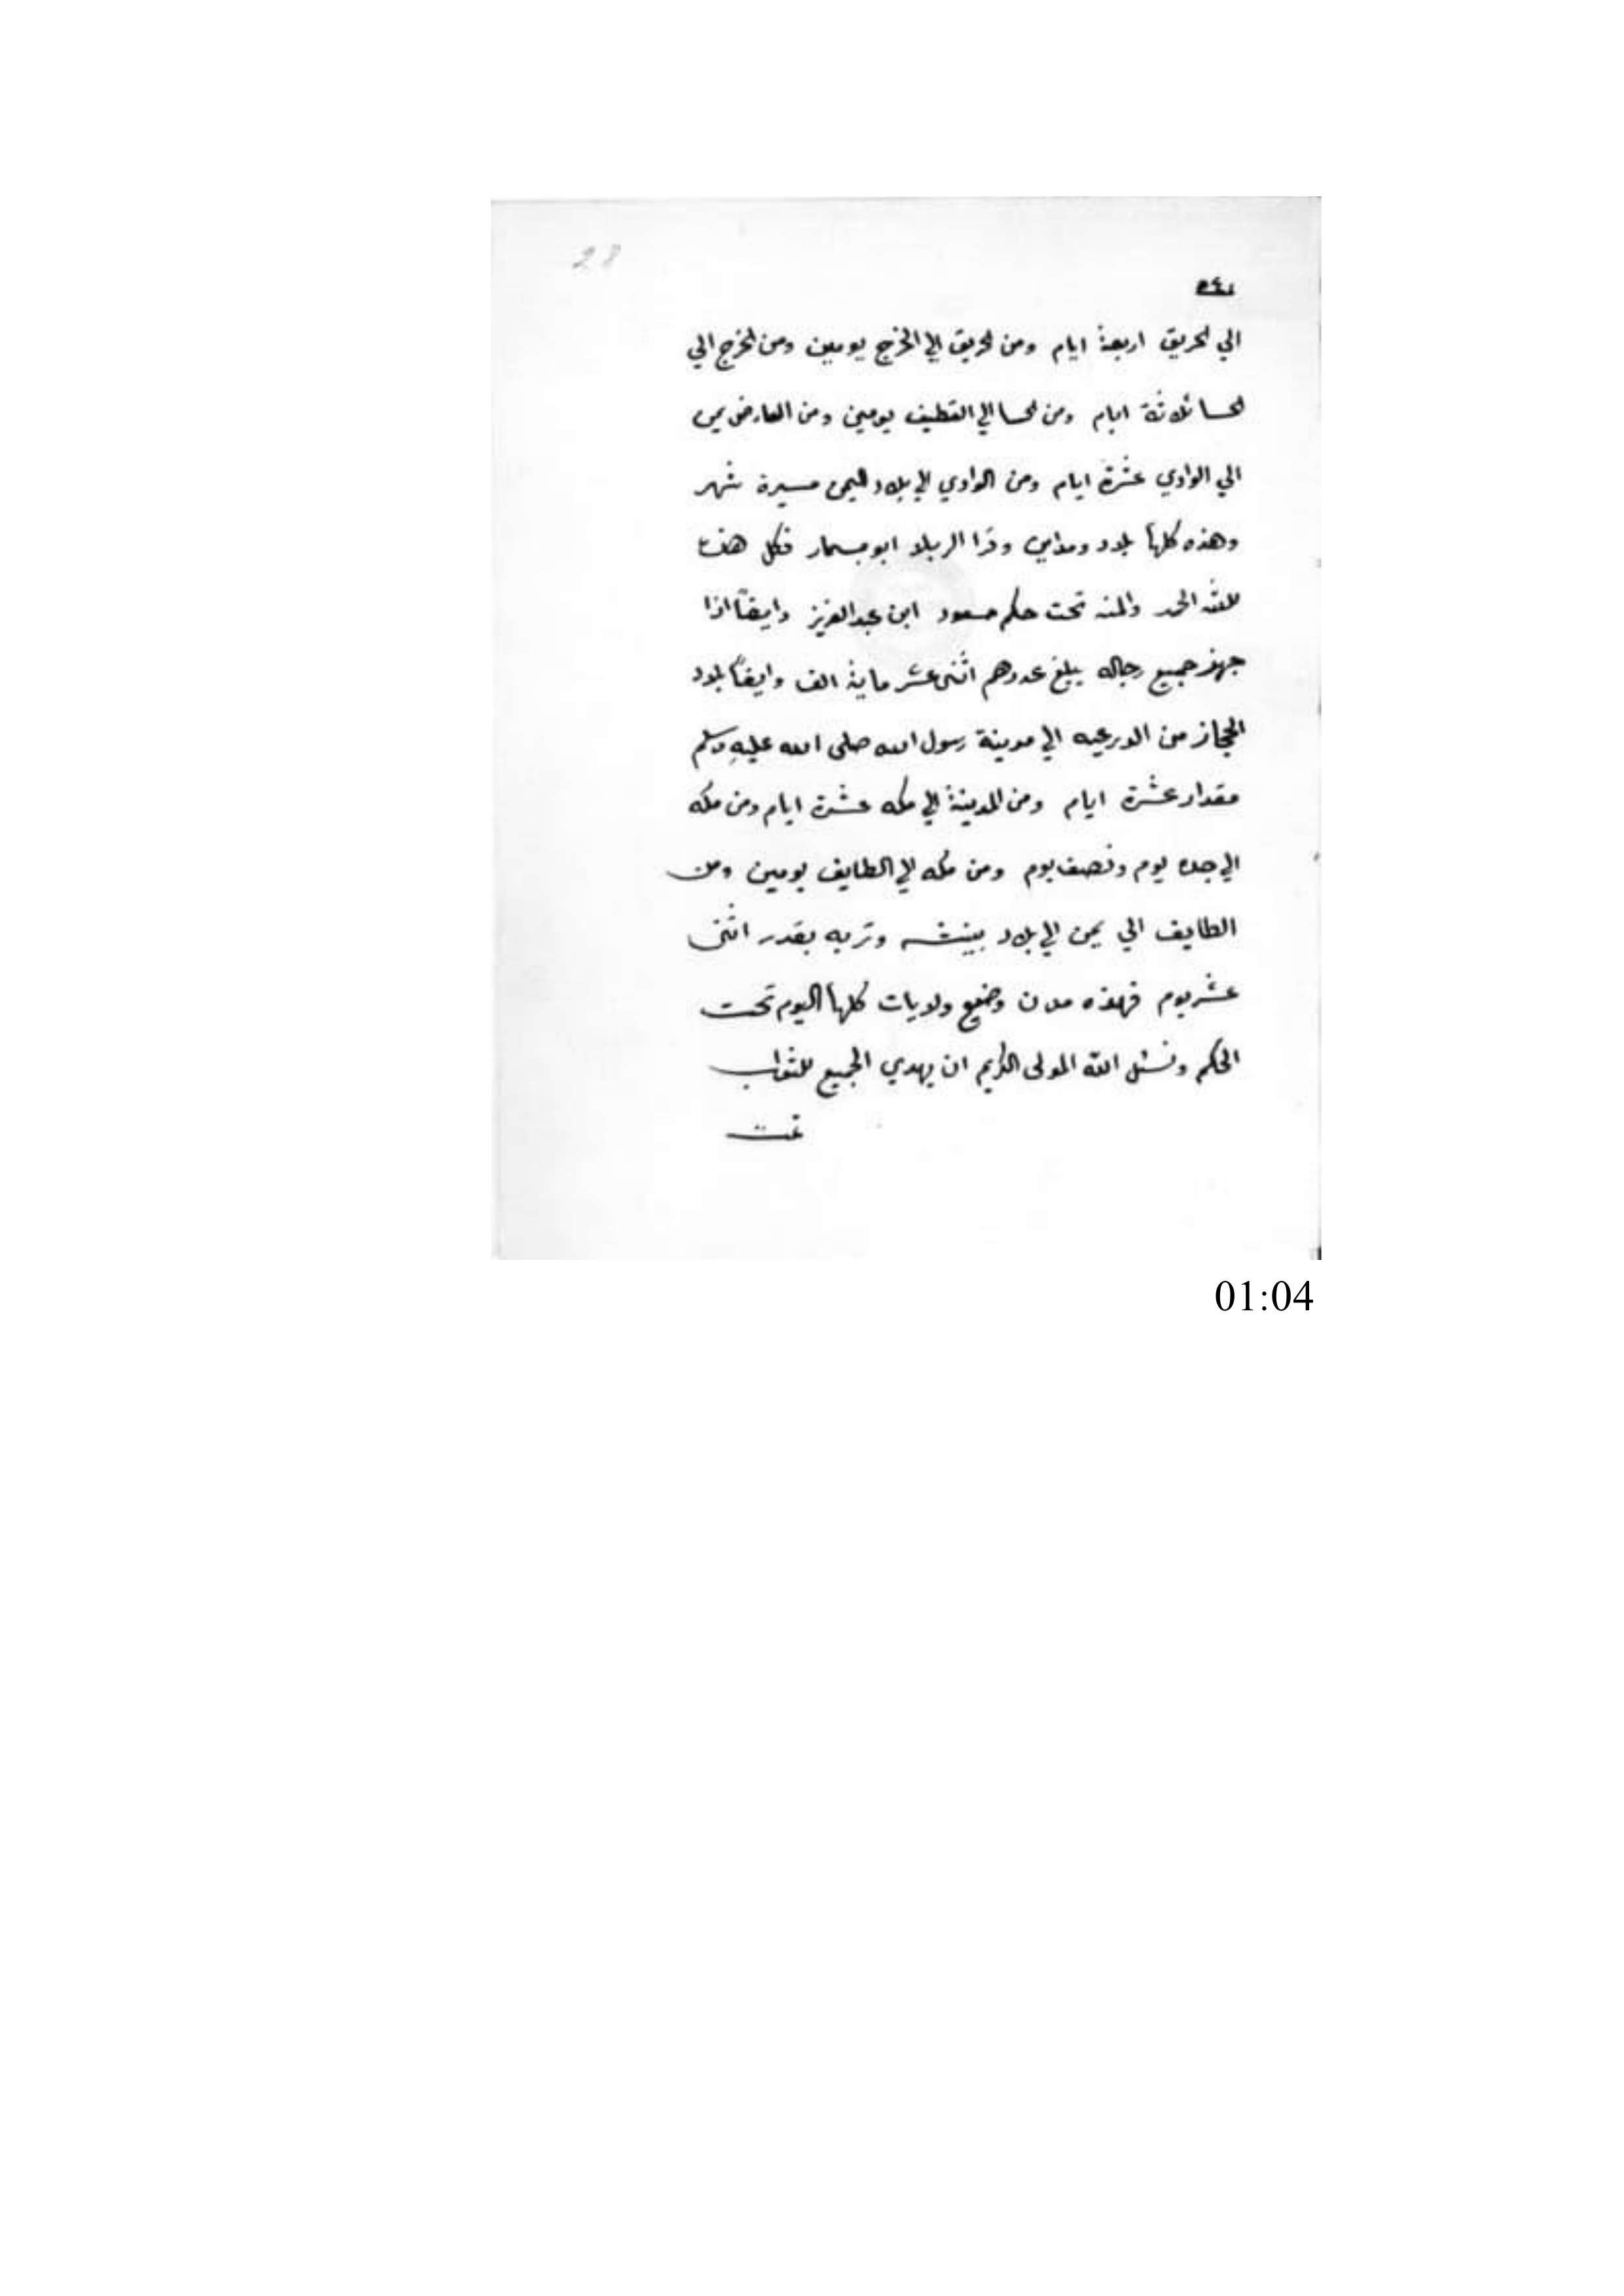 28
الي الحريق اربعة ايام ومن الحريق الي الخرج يومين ومن الخرج الي
الحسا ثلاثة ايام ومن الحسا الي القطيف يومين ومن العارض يمن
الي الوادي عشرة ايام ومن الوادي الي بلاد اليمن مسيرة شهر
وهذه كلها بلاد ومداين وقرا ابو مسمار فكل
لله الحمد والمنه تحت حكم سعود ابن عبد العزيز وايضاً اذا
جهز جميع رجاله يبلغ عددهم اثنى عشر ماية الف وايضاً بلاد
الحجاز من الدرعيه الي مدينة رسول الله صلى الله عليهِ وسلم
مقدار عشرة ايام ومن المدينة الي مكه عشرة ايام ومن مكه
الي جده يوم ونصف يوم ومن مكه الي الطايف يومين ومن
الطايف الي يمن الي بلاد وتربه بقدر اثنى
عشر يوم فهذه مدن وضيع وولايات كلها اليوم تحت
الحكم ونسئل الله المولى الكريم ان يهدي الجميع للثواب
تمت
01:04